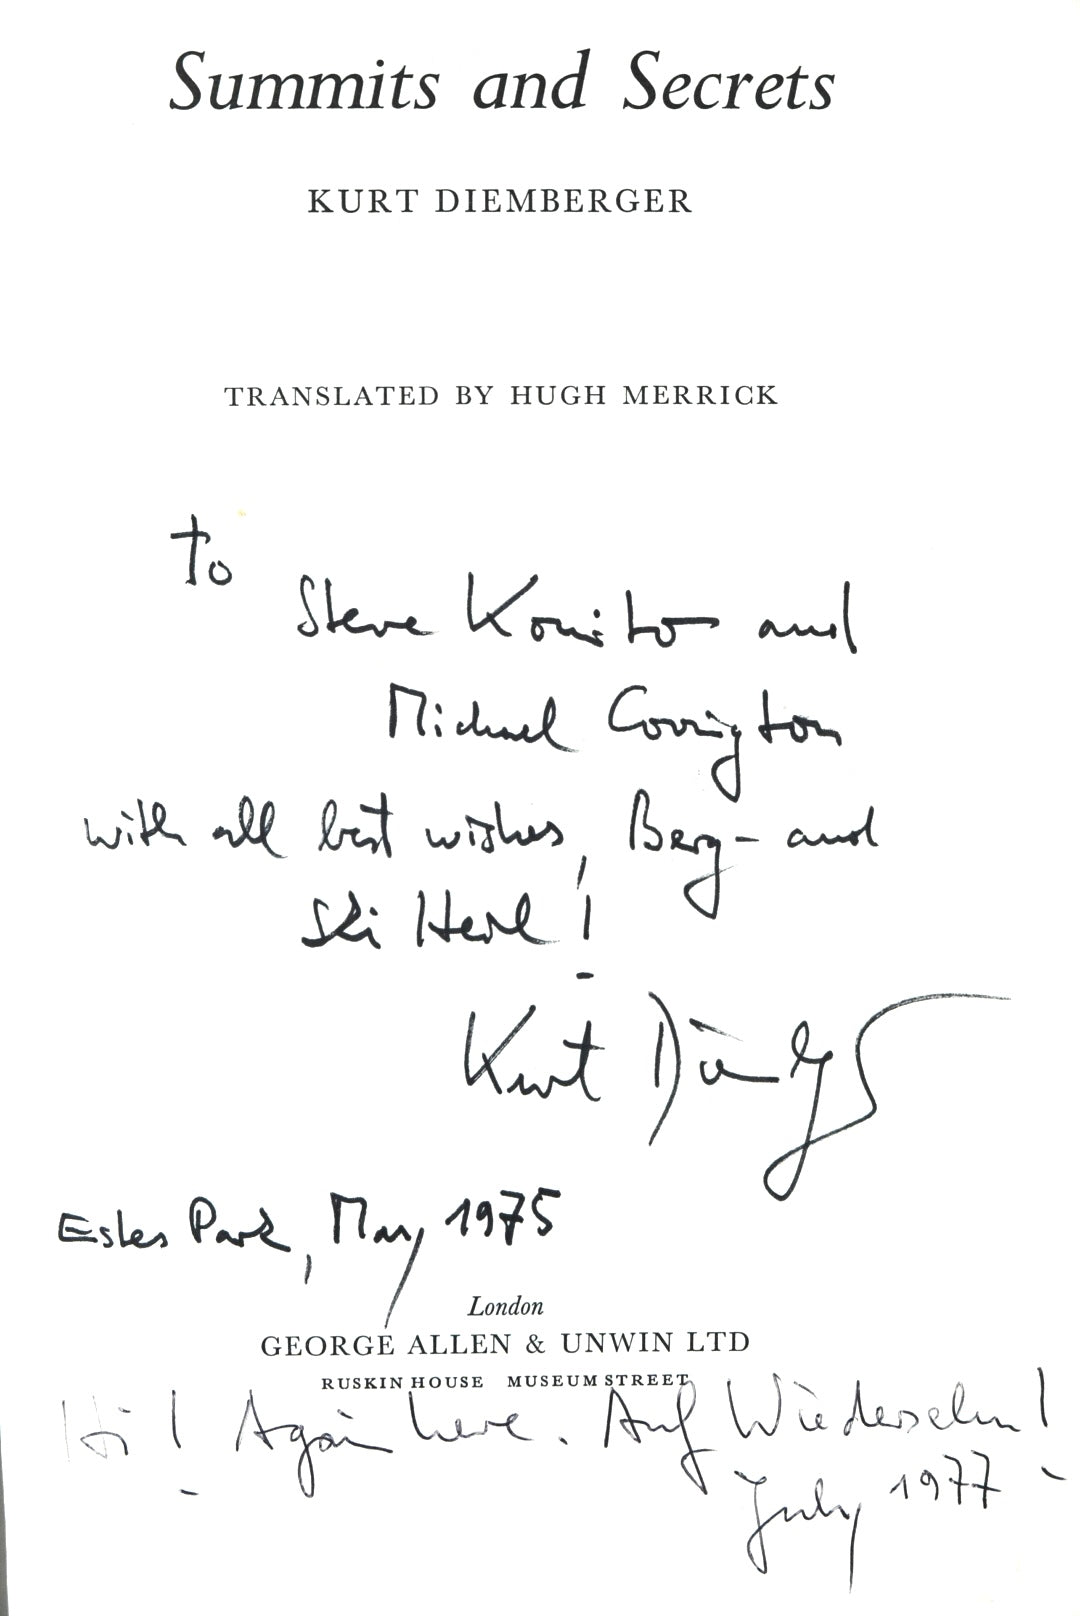 Summits and Secrets
KURT DIEMBERGER
TRANSLATED BY HUGH MERRICK
To
Steve Komito and
Michael Covington
with all best wishes, Berg- and
Ski Heil!
Kurt Diemberger
Estes Park, May 1975
London
GEORGE ALLEN & UNWIN LTD
RUSKIN HOUSE MUSEUM STREET
Hi! Again here. Auf Wiedersehn!
July 1977